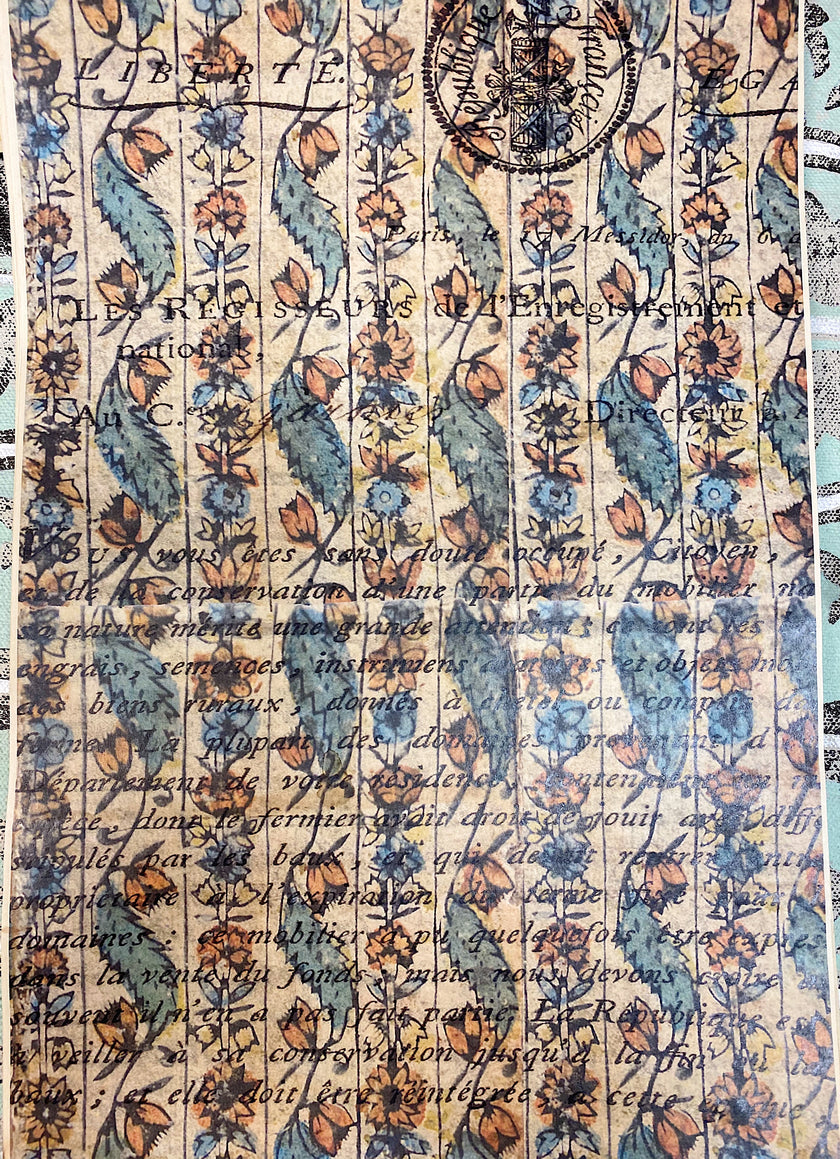 République Française
LIBERTÉ. ÉGA
Paris, le 17 Messidor, an 6
LES RÉGISSEURS de l'Enregistrement et
national,
Au C.en Directeur à
Vous vous êtes sans doute occupé, Citoyen,
et de la conservation d'une partie du mobilier na
sa nature mérite une grande attention; ce sont les
engrais, semences, instrumens aratoires et objets mo
des biens ruraux, donnés à cheptel ou compris da
ferme. La plupart des domaines provenant d
Département de votre résidence, contenaient un m
espèce, dont le fermier avait droit de jouir avec diff
stipulés par les baux, et qui devait rentrer
propriétaire à l'expiration du terme fixé pour
domaines: ce mobilier a pu quelquefois être expres
dans la vente du fonds; mais nous devons croire
souvent il n'en a pas fait partie. La République es
à veiller à sa conservation jusqu'à la fin du te
baux; et elle doit être réintégrée, à cette époque,